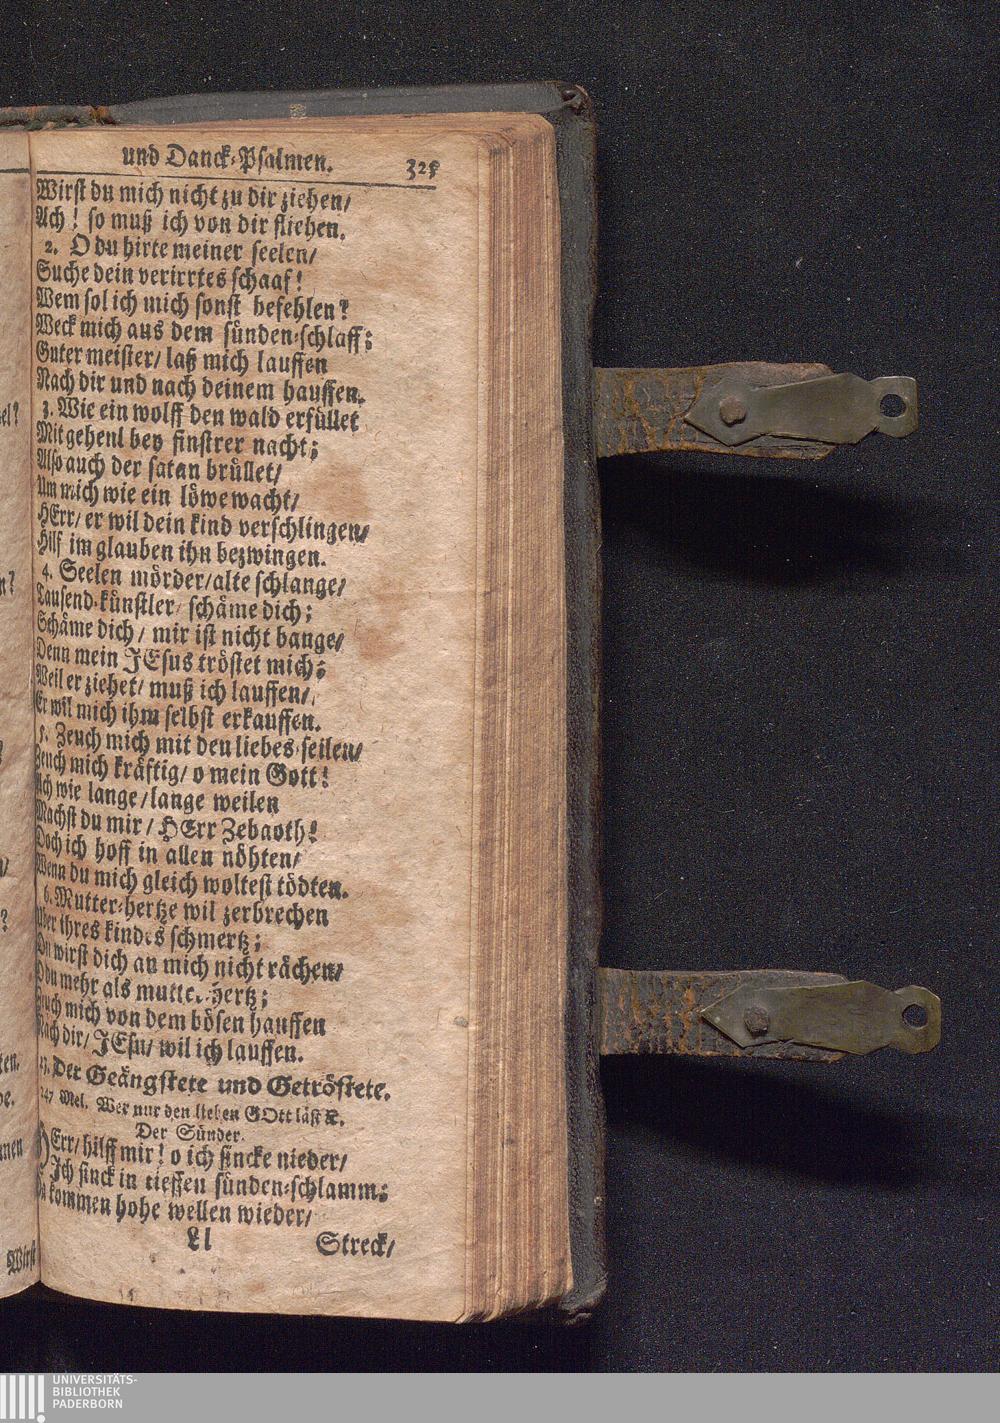 und Danck-Psalmen. 325
Wirst du mich nicht zu dir ziehen/
Ach! so muß ich von dir fliehen.
2. O du hirte meiner seelen/
Suche dein verirrtes schaaf!
Wem sol ich mich sonst befehlen?
Weck mich aus dem sünden-schlaff;
Guter meister/ laß mich lauffen
Nach dir und nach deinem hauffen.
3. Wie ein wolff den wald erfüllet
Mit geheul bey finstrer nacht;
Also auch der satan brüllet/
Um mich wie ein löwe wacht/
HErr/ er wil dein kind verschlingen/
Hilf im glauben ihn bezwingen.
4. Seelen mörder/ alte schlange/
Tausend-künstler/ schäme dich;
Schäme dich/ mir ist nicht bange/
Denn mein JEsus tröstet mich;
Weil er ziehet/ muß ich lauffen/
Er wil mich ihm selbst erkauffen.
5. Zeuch mich mit den liebes-seilen/
Zeuch mich kräftig/ o mein Gott!
Ach wie lange/ lange weilen
Machst du mir/ HErr Zebaoth!
Doch ich hoff in allen nöhten/
Wenn du mich gleich woltest tödten.
6. Mutter-hertze wil zerbrechen
Uber ihres kindes schmertz;
Du wirst dich an mich nicht rächen/
O du mehr als mutter-hertz;
Zeuch mich von dem bösen hauffen
Nach dir/ JEsu/ wil ich lauffen.
Der Geängstete und Getröstete.
247 Mel. Wer nur den lieben GOtt läst &c.
Der Sünder.
HErr/ hilff mir! o ich sincke nieder/
Ich sinck in tieffen sünden-schlamm;
Da kommen hohe wellen wieder/
Ll Streck/
Wirst
UNIVERSITÄTS-
BIBLIOTHEK
PADERBORN